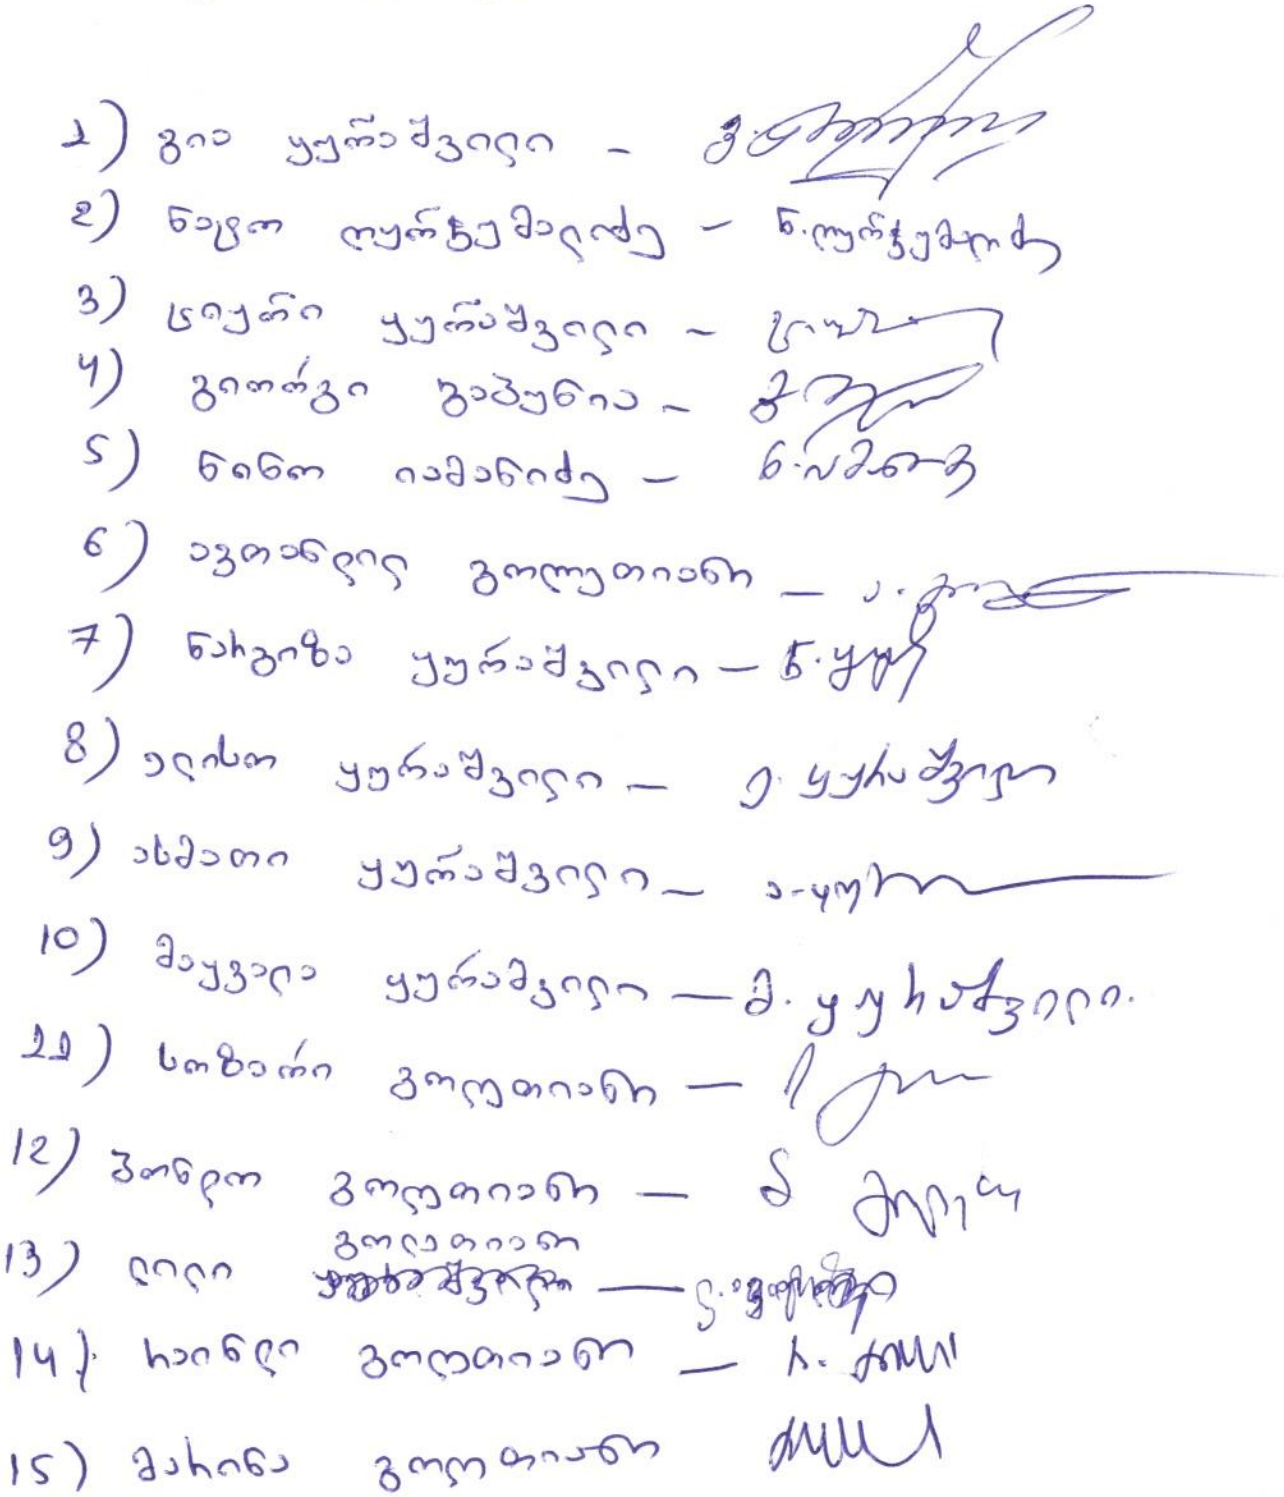 1) გია ყურაშვილი -
2) ნატო ლურჯუმალიძე - ნ.ლურჯუმალიძე
3) ციური ყურაშვილი -
4) გიორგი გაბუნია -
5) ნინო იამანიძე -
6) ავთანდილ გოლეთიანი -
7) ნარგიზა ყურაშვილი - ნ.ყურ
8) ელისო ყურაშვილი - ე. ყურაშვილი
9) ასმათი ყურაშვილი -
10) მაყვალა ყურაშვილი - მ. ყურაშვილი.
11) სოზარი გოლეთიანი -
12) ბონდო გოლეთიანი -
გოლეთიანი
13) ლილი -
14) რაინდი გოლეთიანი -
15) მარინა გოლეთიანი